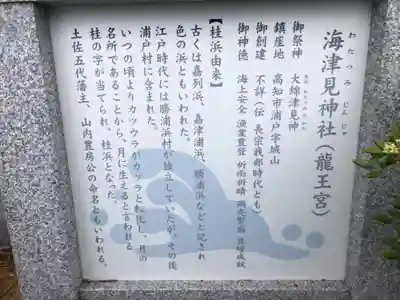 わたつみじんじゃ
海津見神社(龍王宮)
御祭神 大綿津見神
鎮座地 高知市浦戸字城山
御創建 不詳(伝 長宗我部時代とも)
御神徳 海上安全 漁業豊登 祈雨祈晴
【桂浜由来】
古くは嘉列浜、嘉津浦浜、勝浦浜などと記され
色の浜ともいわれた。
江戸時代には勝浦浜村が独立していたが、その後
浦戸村に含まれた。
いつの頃よりカツウラがカツラと転化し、月の
名所であることから、月に生えると言われる
桂の字が当てられ、桂浜となった。
土佐五代藩主、山内豊房公の命名ともいわれる。